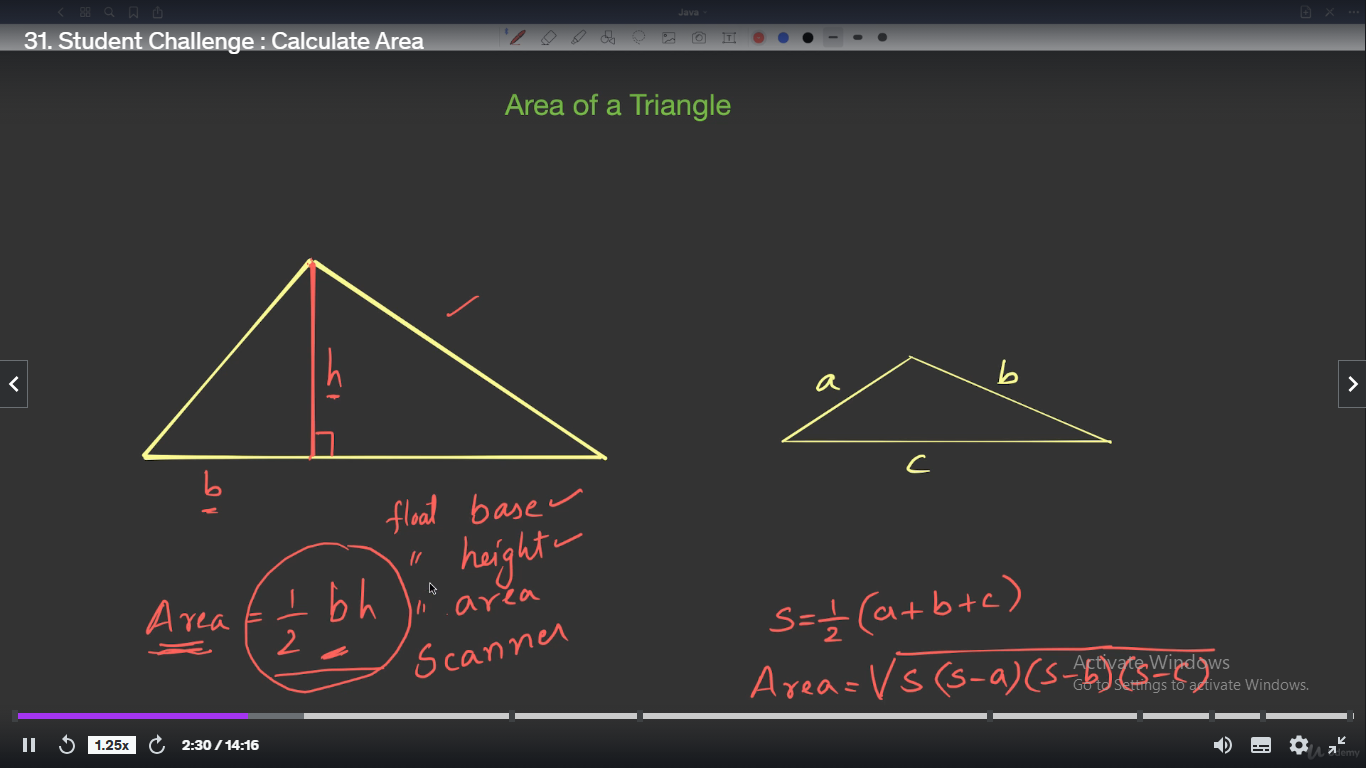 Java
31. Student Challenge : Calculate Area
Area of a Triangle
h
b
a
b
c
float base
" height
" area
Scanner
Area = 1/2 bh
S=1/2 (a+b+c)
Area = √S(S-a)(S-b)(S-c)
Activate Windows
Go to Settings to activate Windows.
1.25x
2:30 / 14:16